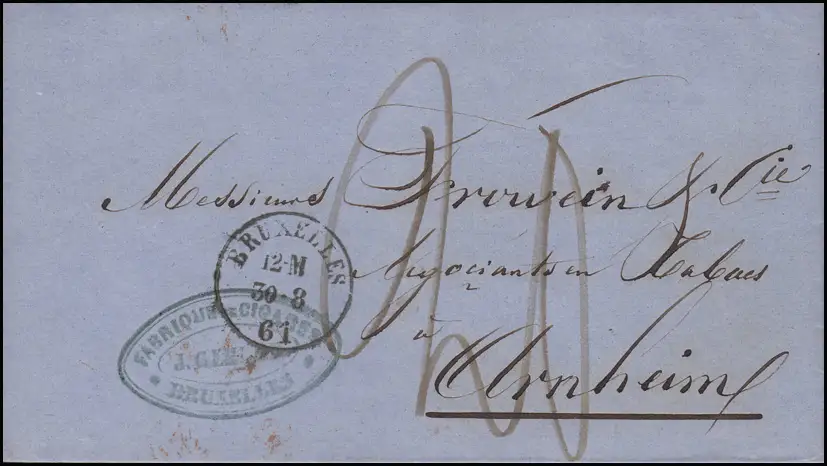 Messieurs Frowein & Cie
Négociants en Tabacs
à
Arnheim
BRUXELLES
12-M
30-8
61
FABRIQUE DE CIGARES
J.
BRUXELLES